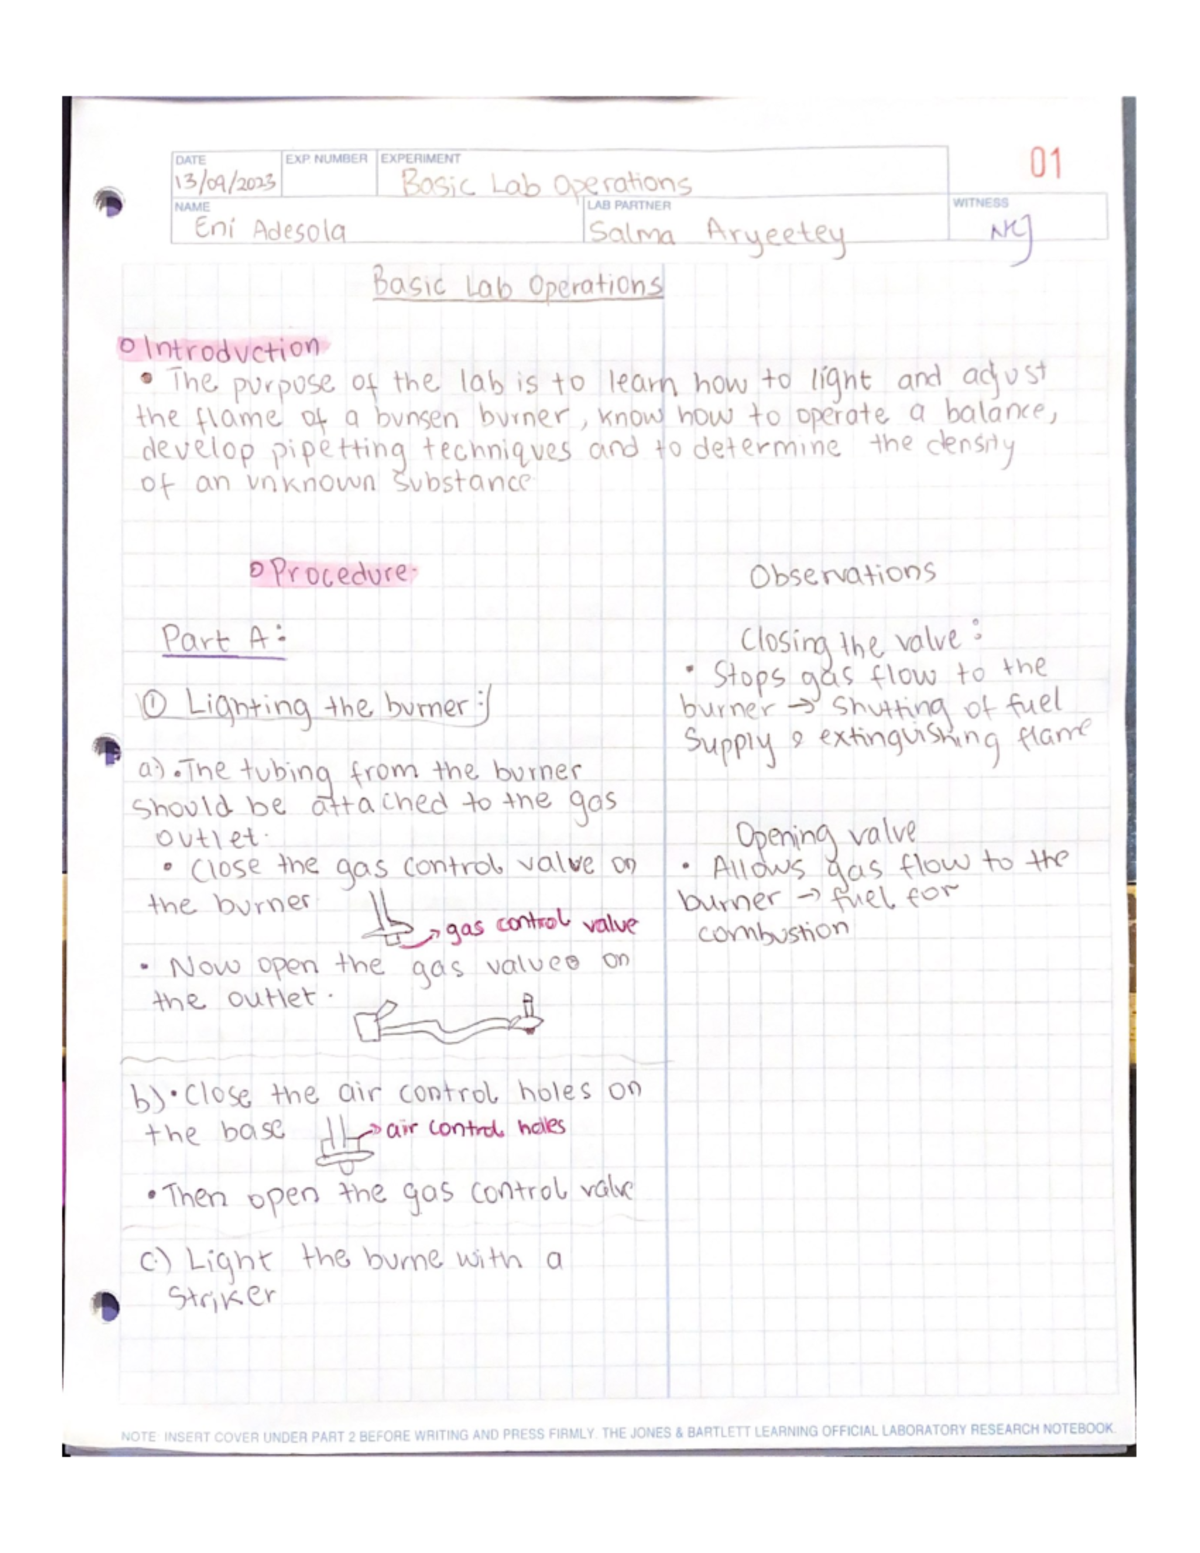 DATE EXP NUMBER EXPERIMENT 01
13/09/2023 Basic Lab Operations
NAME LAB PARTNER WITNESS
Eni Adesola Salma Aryeetey
Basic Lab Operations
Introduction
• The purpose of the lab is to learn how to light and adjust
the flame of a bunsen burner, know how to operate a balance,
develop pipetting techniques and to determine the density
of an unknown substance
Procedure
Part A:
① Lighting the burner:
a) • The tubing from the burner
should be attached to the gas
outlet.
• Close the gas control valve on
the burner
→ gas control valve
• Now open the gas valve on
the outlet.
b) • Close the air control holes on
the base
→ air control holes
• Then open the gas control valve
c) Light the burne with a
striker
Observations
Closing the valve:
• Stops gas flow to the
burner → Shutting of fuel
Supply & extinguishing flame
Opening valve
• Allows gas flow to the
burner → fuel for
combustion
NOTE INSERT COVER UNDER PART 2 BEFORE WRITING AND PRESS FIRMLY. THE JONES & BARTLETT LEARNING OFFICIAL LABORATORY RESEARCH NOTEBOOK.